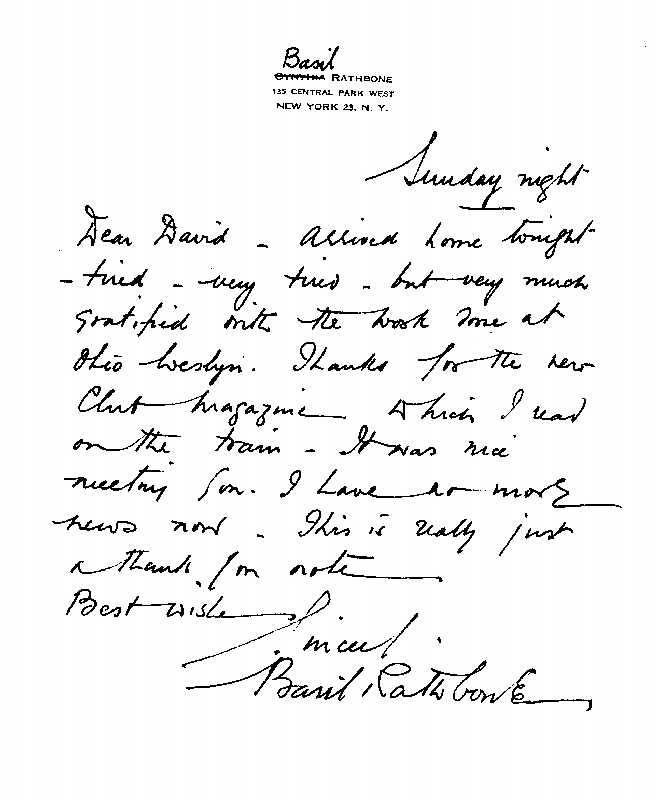 Basil
CYNTHIA RATHBONE
135 CENTRAL PARK WEST
NEW YORK 23, N. Y.
Sunday night
Dear David - Arrived home tonight
- tired - very tired - but very much
gratified with the work done at
Ohio Weslyn. Thanks for the new
Club Magazine which I read
on the train - It was nice
meeting you. I have no more
news now - This is really just
a thank you note
Best wishe
Sincerl.
Basil Rathbone